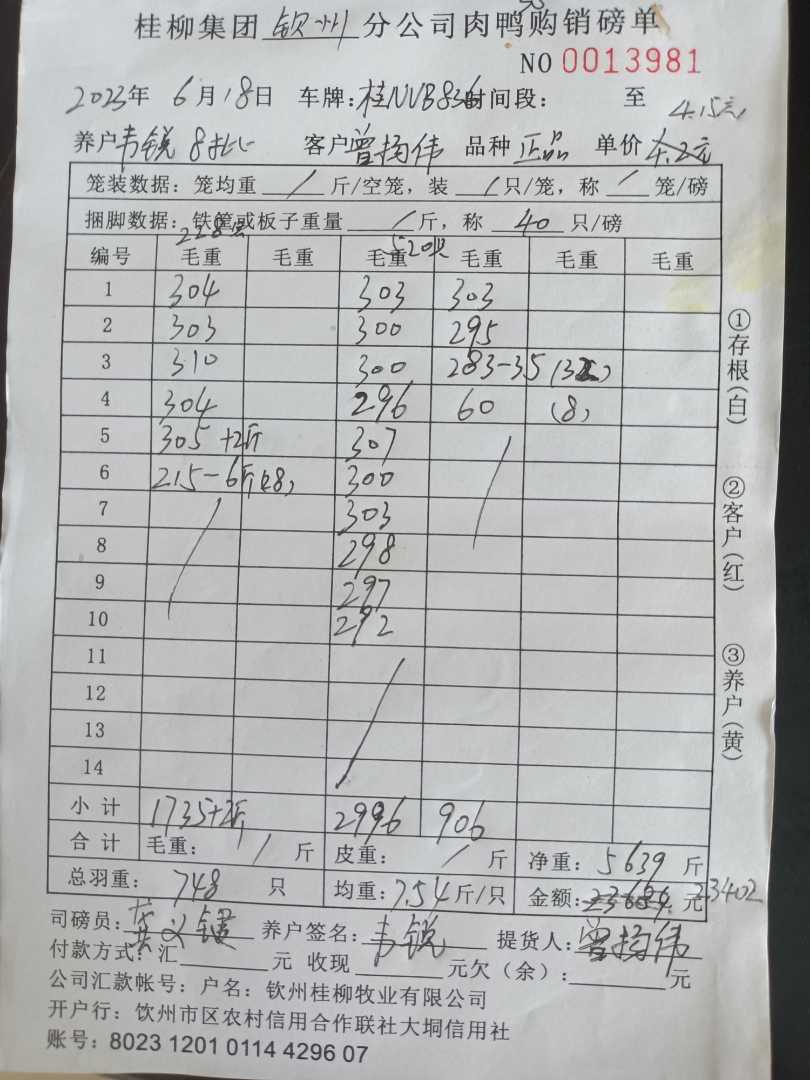 桂柳集团 钦州 分公司肉鸭购销磅单
NO 0013981
2023年 6月18日 车牌：桂NVB836 时间段： 至
4.15元
养户 韦锐 8批 客户 曾扬伟 品种 正品 单价 4.2元
笼装数据：笼均重 / 斤/空笼，装 / 只/笼，称 / 笼/磅
捆脚数据：铁筐或板子重量 / 斤，称 40 只/磅
228只 520只
编号 毛重 毛重 毛重 毛重 毛重 毛重
1 304 303 303
2 303 300 295
3 310 300 283-35
4 304 296 60 (8)
5 305+2斤 307
6 215-6斤(28) 300
7 303
8 298
9 297
10 292
11
12
13
14
小计 1735+2斤 2996 906
合计 毛重： / 斤 皮重： / 斤 净重：5639 斤
总羽重：748 只 均重：7.54斤/只 金额：23684 元 23402
司磅员： 养户签名：韦锐 提货人：曾扬伟
付款方式：汇 元 收现 元欠（余）： 元
公司汇款帐号：户名：钦州桂柳牧业有限公司
开户行：钦州市区农村信用合作联社大垌信用社
账号：8023 1201 0114 4296 07
①存根（白）
②客户（红）
③养户（黄）